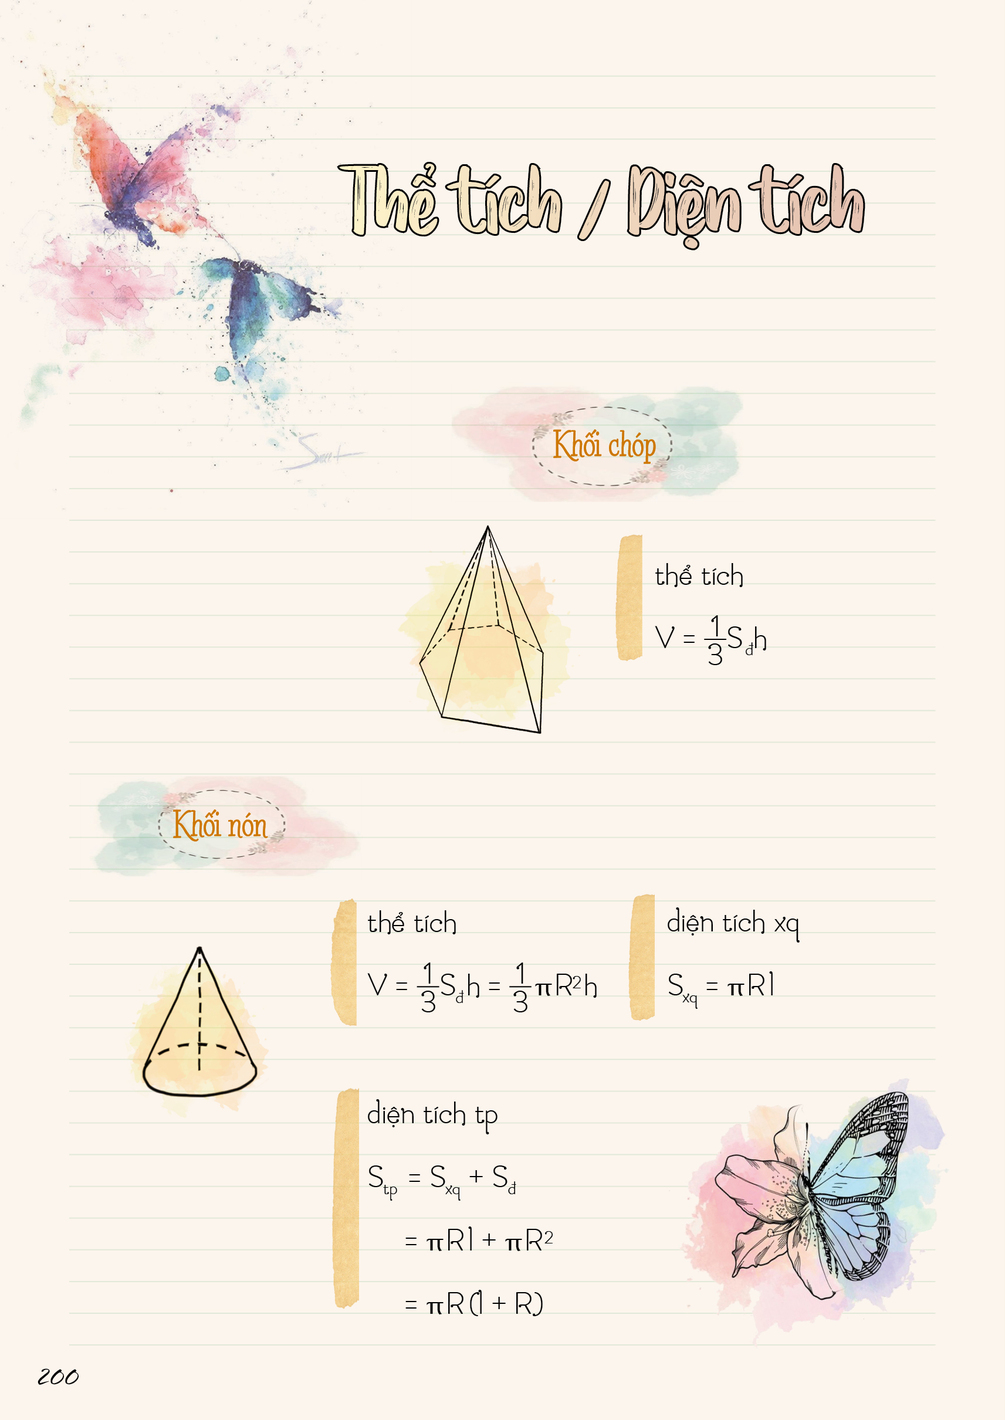 Thể tích / Diện tích
Khối chóp
thể tích
V = 1/3 Sđh
Khối nón
thể tích
V = 1/3 Sđh = 1/3 πR²h
diện tích xq
Sxq = πRl
diện tích tp
Stp = Sxq + Sđ
= πRl + πR²
= πR(l + R)
200